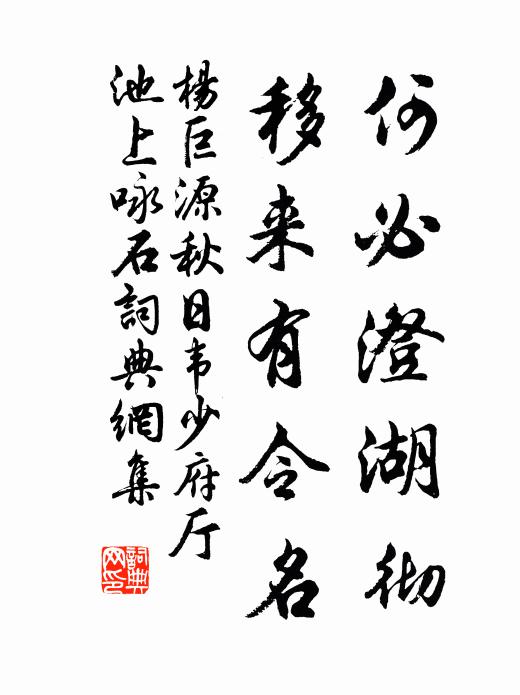 何必澄湖彻
移来有令名
楊巨源秋日韦少府厅
池上咏石詞典網集
詞典網印